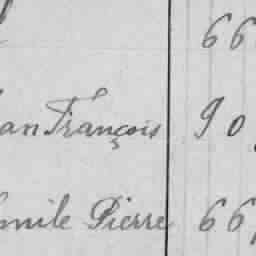 66
an François 90
mile Pierre 66